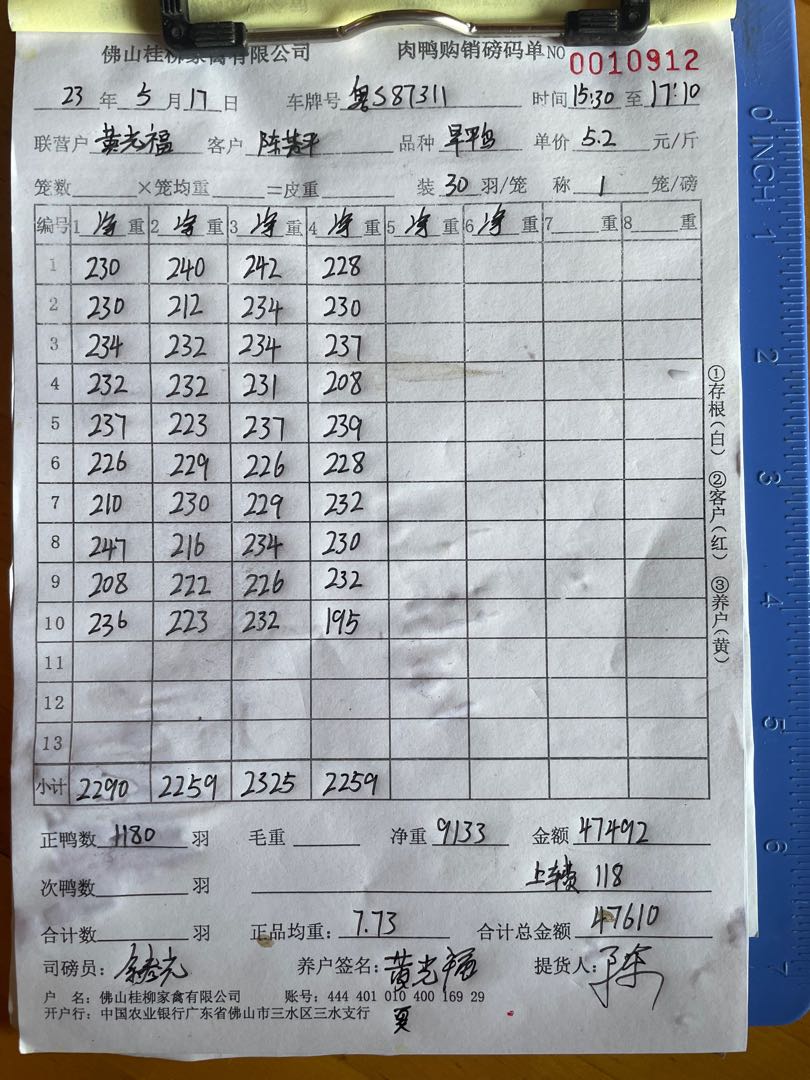 佛山桂柳家禽有限公司 肉鸭购销磅码单 NO 0010912
23 年 5 月 17 日 车牌号 粤S87311 时间 15:30 至 17:10
联营户 黄光福 客户 品种 旱平鸟 单价 5.2 元/斤
笼数 ×笼均重 =皮重 装 30 羽/笼 称 1 笼/磅
编号 1 净 重 2 净 重 3 净 重 4 净 重 5 净 重 6 净 重 7 重 8 重
1 230 240 242 228
2 230 212 234 230
3 234 232 234 237
4 232 232 231 208
5 237 223 237 239
6 226 229 226 228
7 210 230 229 232
8 247 216 234 230
9 208 222 226 232
10 236 223 232 195
11
12
13
小计 2290 2259 2325 2259
正鸭数 1180 羽 毛重 净重 9133 金额 47492
次鸭数 羽 上车费 118
合计数 羽 正品均重: 7.73 合计总金额 47610
司磅员: 养户签名: 黄光福 提货人:
户 名: 佛山桂柳家禽有限公司 账号: 444 401 010 400 169 29
开户行: 中国农业银行广东省佛山市三水区三水支行 夏
①存根(白) ②客户(红) ③养户(黄)
0 INCH 1 2 3 4 5 6 7